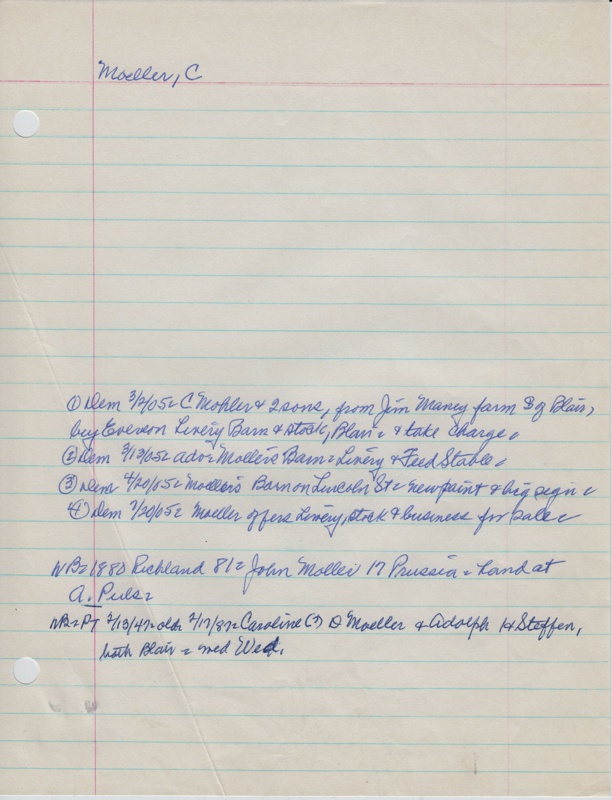 Moeller, C
① Dem 3/2/05 = C. Mohler & 2 sons, from Jim Maney farm S of Blair,
buy Everson Livery Barn & stock, Blair = & take charge =
② Dem 3/13/05 = adv = Moller's Barn = Livery & Feed Stable =
③ Dem 4/20/05 = Moeller's Barn on Lincoln St = new paint & big sign =
④ Dem 7/20/05 = Moeller offers Livery, stock & business for sale =
NB = 1880 Richland 81 = John Moller 17 Prussia = hand at
A. Puls =
NB = PT 2/13/47 = old 2/17/87 = Caroline (?) D Moeller & Adolph H Steffen,
both Blair = med Wed.